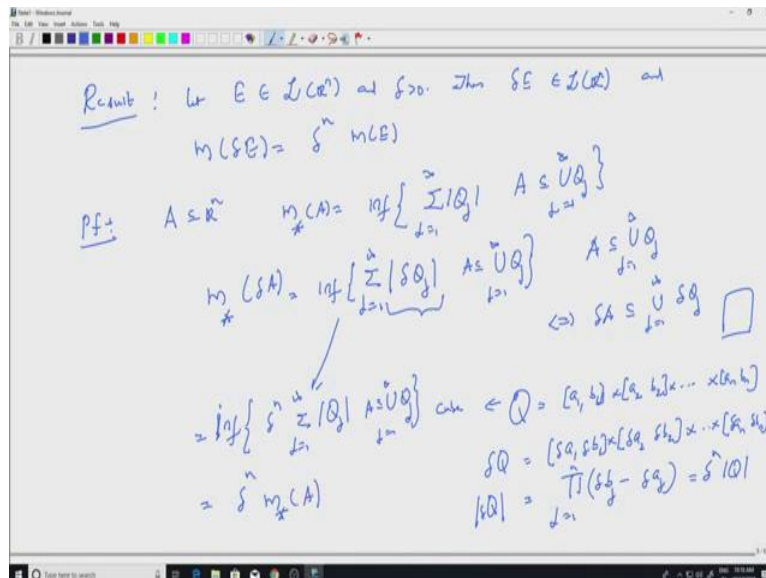 Note1 - Windows Journal
File Edit View Insert Actions Tools Help
Result : Let E ∈ L(ℝⁿ) and δ>0. Then δE ∈ L(ℝⁿ) and
m(δE) = δⁿ m(E)
Pf: A ⊆ ℝⁿ m_*(A) = inf{ ∑_{j=1}^∞ |Q_j| A ⊆ ⋃_{j=1}^∞ Q_j }
m_*(δA) = inf{ ∑_{j=1}^∞ |δQ_j| A ⊆ ⋃_{j=1}^∞ Q_j } A ⊆ ⋃_{j=1}^∞ Q_j
⇔ δA ⊆ ⋃_{j=1}^∞ δQ_j
= inf{ δⁿ ∑_{j=1}^∞ |Q_j| A ⊆ ⋃_{j=1}^∞ Q_j } cube ← Q = [a₁, b₁]×[a₂ b₂]×...×[aₙ bₙ]
δQ = [δa₁, δb₁]×[δa₂ δb₂]×...×[δaₙ δbₙ]
= δⁿ m_*(A) |δQ| = ∏_{j=1}^n (δb_j - δa_j) = δⁿ|Q|
Type here to search